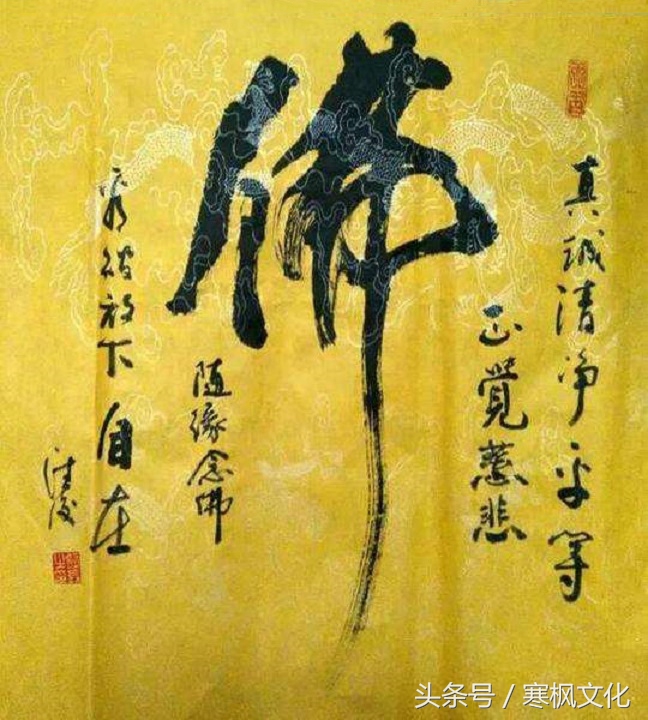 真誠清净平等
正覺慈悲
佛
看破放下自在
随緣念佛
头条号 / 寒枫文化